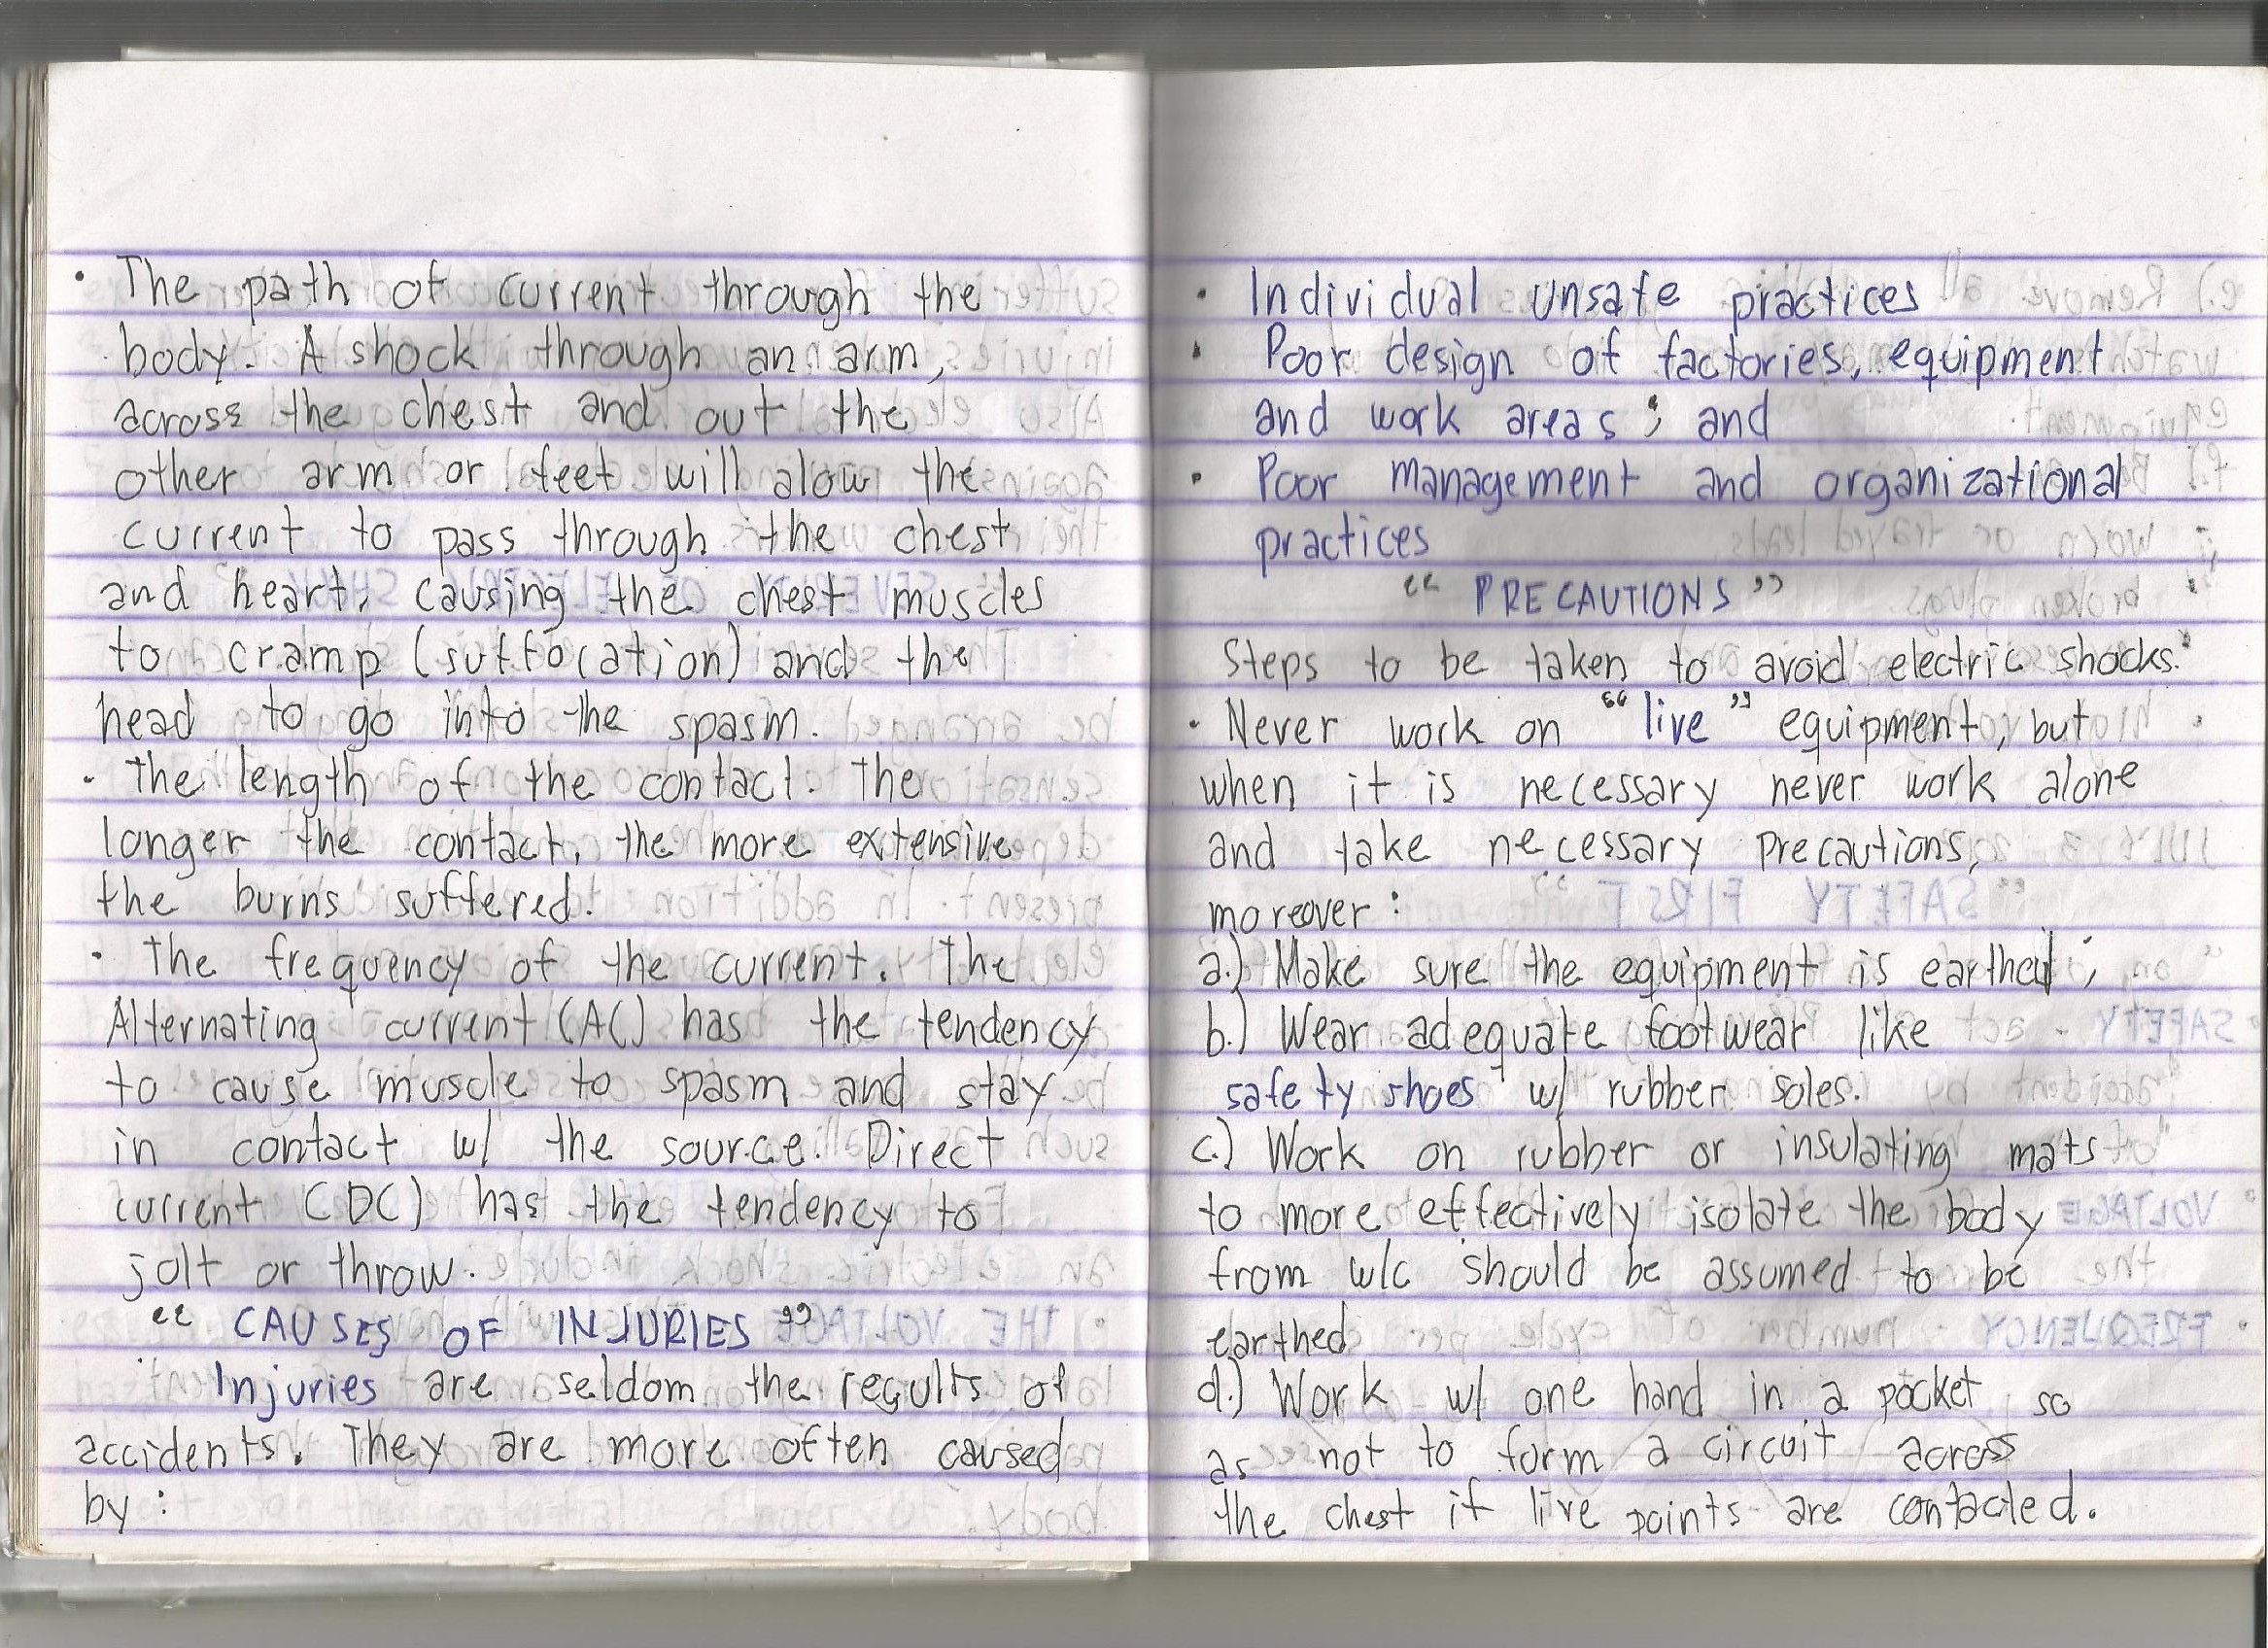 • The path of current through the
body. A shock through an arm,
across the chest and out the
other arm or feet will alow the
current to pass through the chest
and heart, causing the chest muscles
to cramp (suffocation) and the
head to go into the spasm.
• The length of the contact. The
longer the contact, the more extensive
the burns suffered.
• The frequency of the current. The
Alternating current (AC) has the tendency
to cause muscle to spasm and stay
in contact w/ the source. Direct
current (DC) has the tendency to
jolt or throw.
“ CAUSES OF INJURIES ”
Injuries are seldom the results of
accidents. They are more often caused
by :
• Individual unsafe practices
• Poor design of factories, equipment
and work areas ; and
• Poor management and organizational
practices
“ PRECAUTIONS ”
Steps to be taken to avoid electric shocks:
• Never work on “live” equipment, but
when it is necessary never work alone
and take necessary precautions,
moreover :
a.) Make sure the equipment is earthed ;
b.) Wear adequate footwear like
safety shoes w/ rubber soles.
c.) Work on rubber or insulating mats
to more effectively isolate the body
from w/c should be assumed to be
earthed
d.) Work w/ one hand in a pocket so
as not to form a circuit across
the chest if live points are contacted.